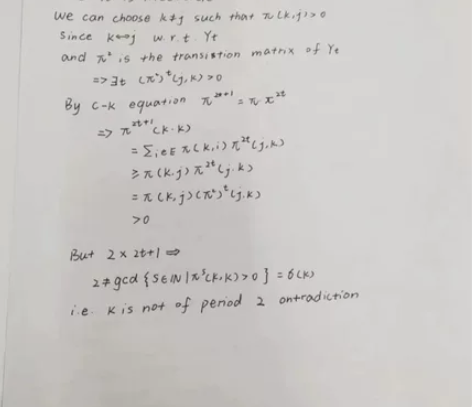 We can choose k≠j such that π(k,j)>0
Since k↔j w.r.t. Yt
and π² is the transistion matrix of Yt
=> ∃t (π²)ᵗ(j,k)>0
By C-K equation π²ᵗ⁺¹ = π π²ᵗ
=> π²ᵗ⁺¹(k,k)
= Σi∈E π(k,i) π²ᵗ(j,k)
≥ π(k,j) π²ᵗ(j,k)
= π(k,j)(π²)ᵗ(j,k)
>0
But 2 × 2t+1 =>
2 ≠ gcd {S∈IN | πˢ(k,k)>0} = 6(k)
i.e. k is not of period 2 ontradiction